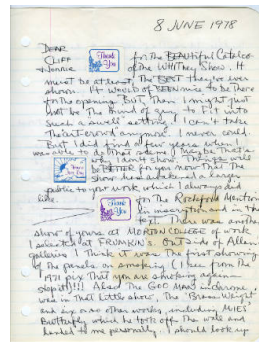 8 JUNE 1978
DEAR
CLIFF
+ NONNIE
Thank You
for the BEAUtiful Catalog
of the WHITNEY Show. It
must be at least The BEST they've ever
shown. It would of BEEN nice to be there
for the opening. BUT, Then I might
not be the kind of guy to fit into
such a swell setting. I can't take
The art crowd anymore. I never could.
But I did for a few years when I
was able to do that.
why I don't show. This
Thank You
be BETTER for you now that The
Show has awakened a larger
public to your work, which I always did
like.
Thank You
for the Rockford Mention
inscription and in the
There was another
show of yours at MORTON COLLEGE of work
I selected at FRUMKINS. Outside of Allan's
galleries I Think it was The first showing
of the panels on smoking (I learn from the
1971 pix That you are smoking again
despite!!!! Also The GOD MAN in chrome
was in That little show, The "Brass Weight"
and six or so other works, including MILES'
Butterfly which he took off The wall and
handed to me personally. I should look up